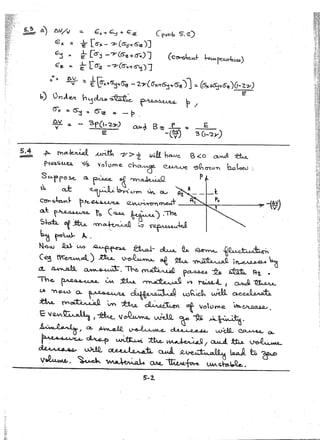 5.3 a) ΔV/V = εx + εy + εz (prob 5.2)
εx = 1/E [σx - ν(σy+σz)]
εy = 1/E [σy - ν(σx+σz)] (constant temperature)
εz = 1/E [σz - ν(σx+σy)]
∴ ΔV/V = 1/E [σx+σy+σz - 2ν(σx+σy+σz)] = (σx+σy+σz)(1-2ν)/E
b) Under hydrostatic pressure p,
σx = σy = σz = -p
ΔV/V = - 3p(1-2ν)/E and B = p/-(ΔV/V) = E/3(1-2ν)
5.4 A material with ν > 1/2 will have B<0 and the
pressure vs volume change curve shown below:
Suppose a piece of material
is at equilibrium in a
constant pressure environment
at pressure P₀ (see figure). The
State of the material is represented
by point A.
P
A
P₀
-(ΔV/V)
Now let us suppose that due to some fluctuation
(eg thermal) the volume of the material increases by
a small amount. The material passes to state A₂.
The pressure in the material is raised, and there
is now a pressure differential which will accelerate
the material in the direction of volume increase.
Eventually, the volume will go to infinity.
Similarly, a small volume decrease will cause a
pressure drop within the material, and the volume
decrease will accelerate and eventually lead to zero
volume. Such materials are therefore unstable.
5-2